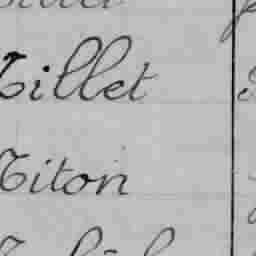 Tillet
Titon